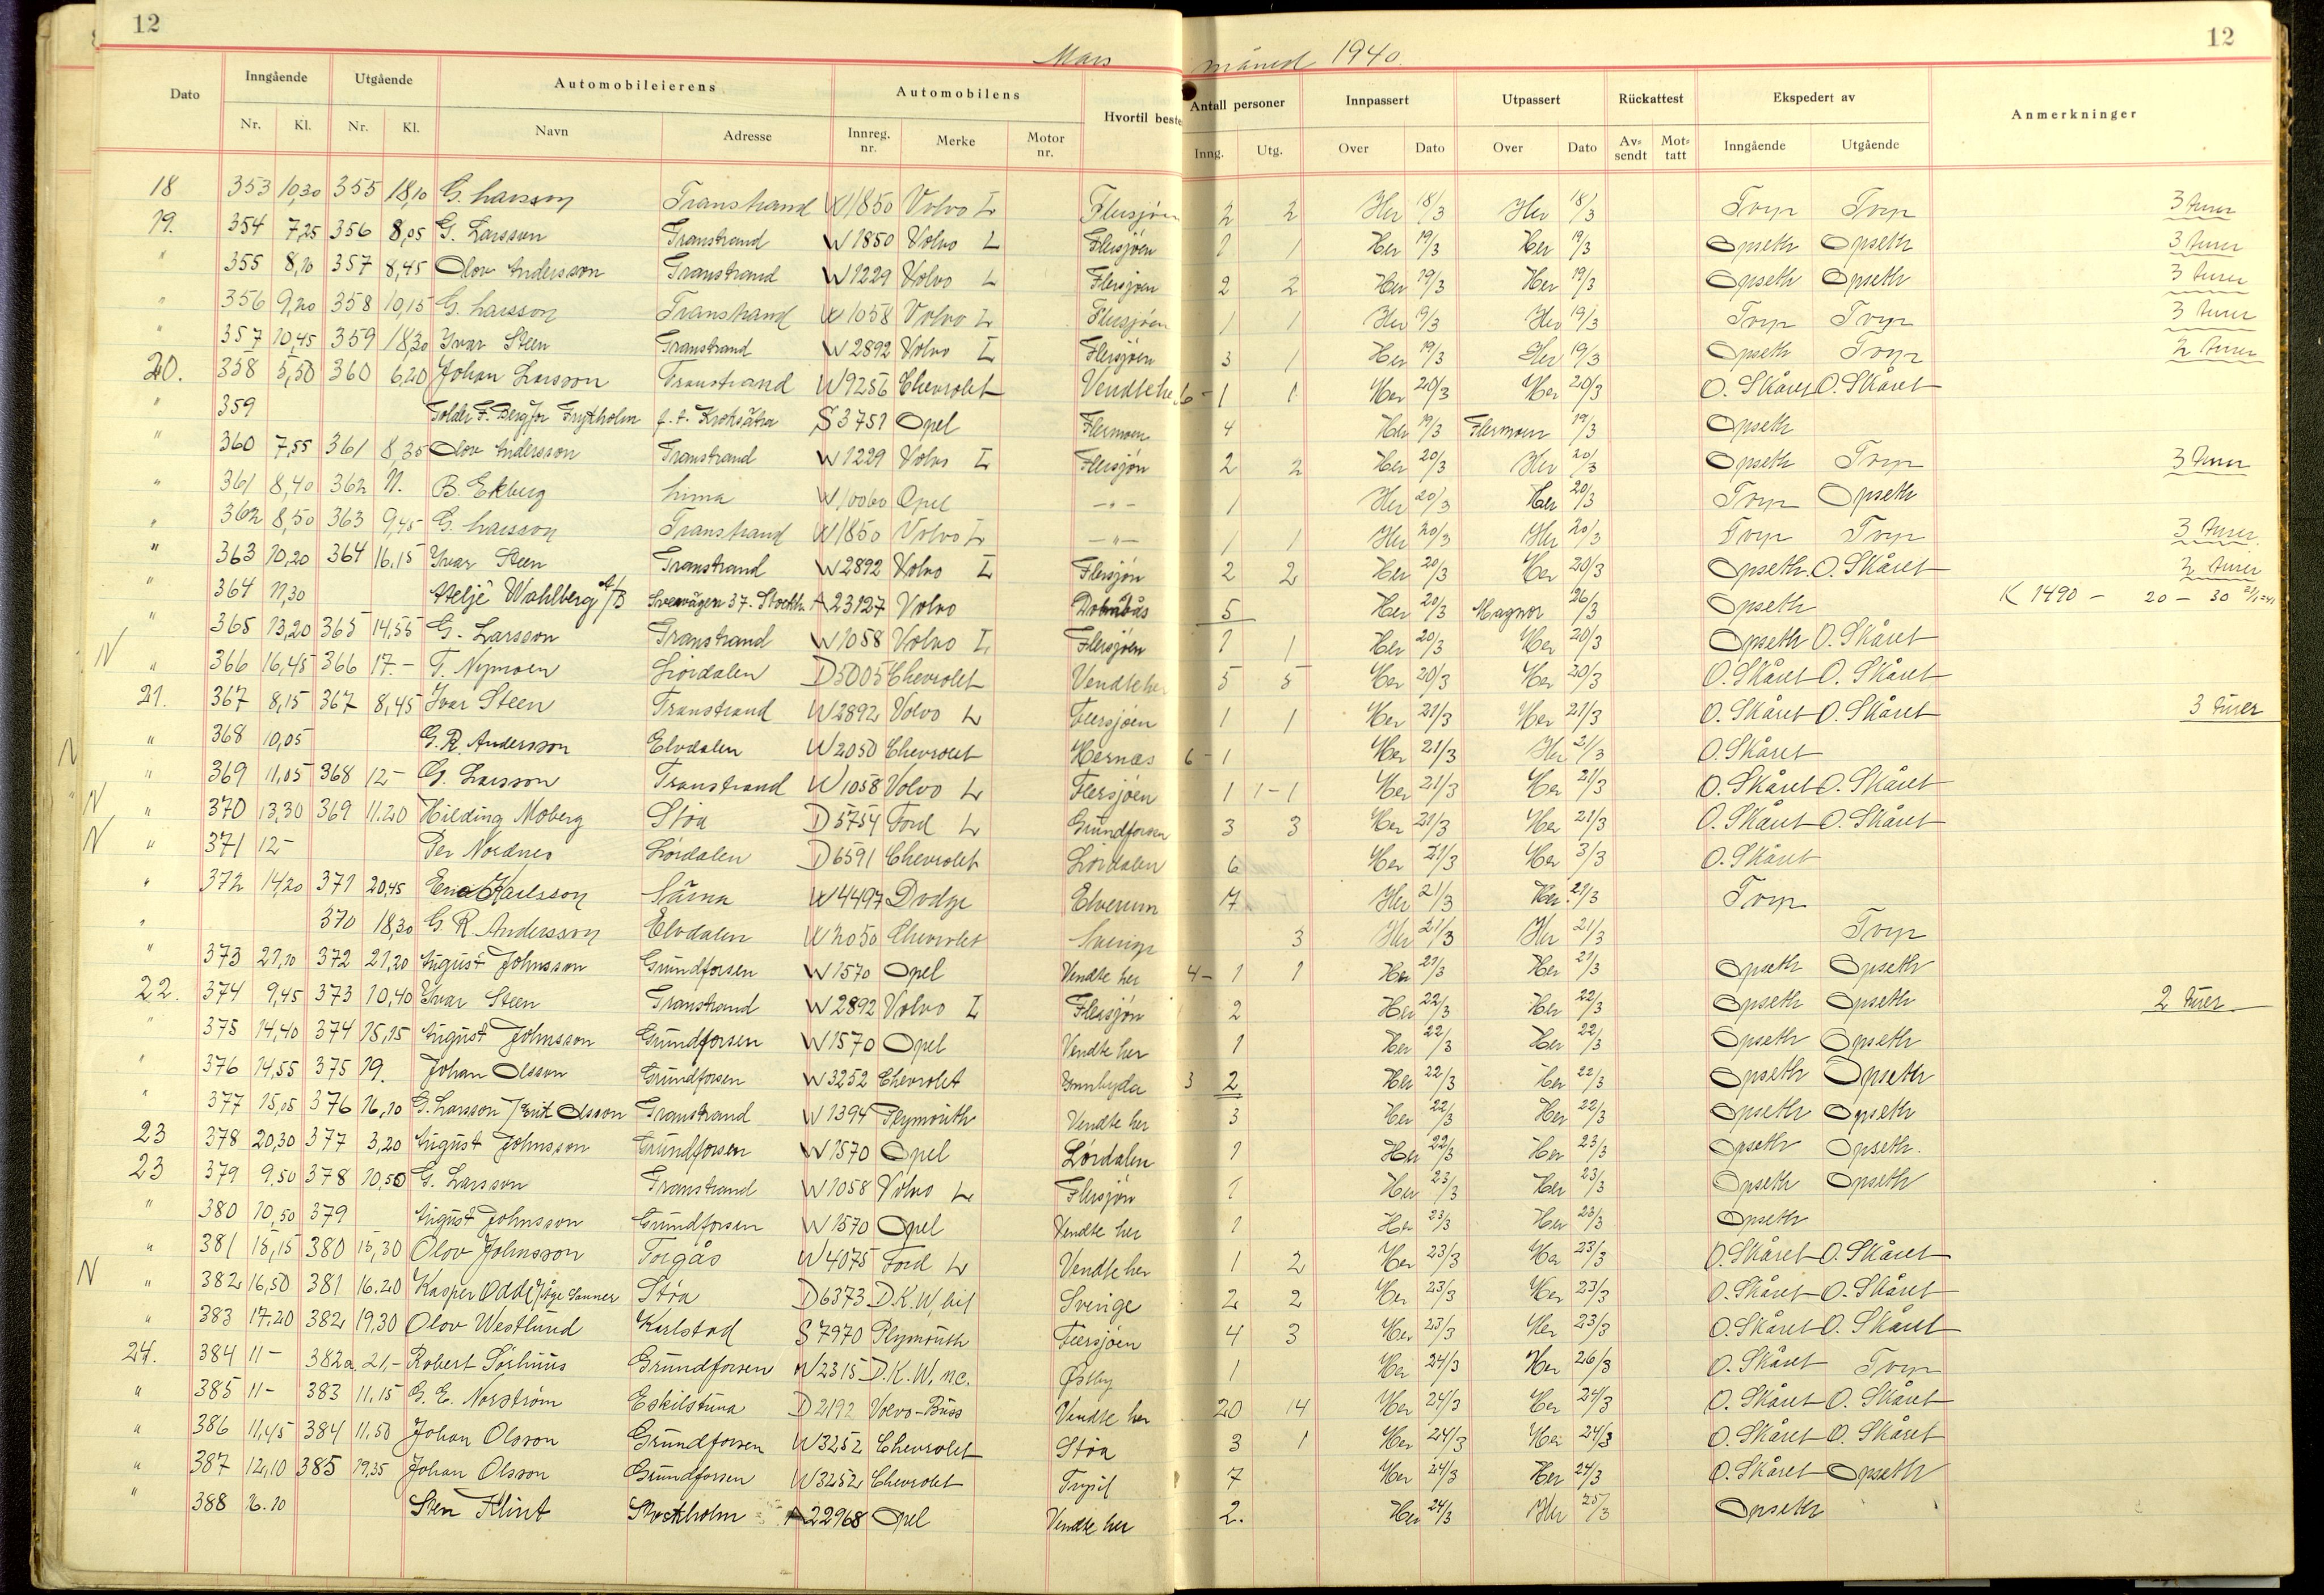 12
12
Mars måned 1940.
Dato Inngående Utgående Automobileierens Automobilens Hvortil beste Antall personer Innpassert Utpassert Rückattest Ekspedert av Anmerkninger
Nr. Kl. Nr. Kl. Navn Adresse Innreg. nr. Merke Motor nr. Inng. Utg. Over Dato Over Dato Av= sendt Mot= tatt Inngående Utgående
18 353 10,30 355 18,10 G. Larsson Transtrand W1850 Volvo L Flersjøen 2 2 Her 18/3 Her 18/3 Torp Torp 3 turer
19. 354 7,25 356 8,05 G. Larsson Transtrand W1850 Volvo L Flersjøen 1 1 Her 19/3 Her 19/3 Opseth Opseth 3 turer
" 355 8,10 357 8,45 Olov Andersson Transtrand W1229 Volvo L Flersjøen 2 2 Her 19/3 Her 19/3 Opseth Opseth 3 turer
" 356 9,20 358 10,15 G. Larsson Transtrand W1058 Volvo L Flersjøen 1 1 Her 19/3 Her 19/3 Torp Torp 3 turer
" 357 10,45 359 18,30 Yvar Steen Transtrand W2892 Volvo L Flersjøen 3 1 Her 19/3 Her 19/3 Opseth Torp 2 turer
20. 358 5,50 360 6,20 Johan Larsson Transtrand W9256 Chevrolet Vendte he 6 - 1 1 Her 20/3 Her 20/3 O. Skåret O. Skåret
" 359 S3751 Opel Flermoen 4 Her 19/3 Flermoen 19/3 Opseth
" 360 7,55 361 8,35 Olov Andersson Transtrand W1229 Volvo L Flersjøn 2 2 Her 20/3 Her 20/3 Opseth Torp 3 turer
" 361 8,40 362 11. B. Ekberg Lima W10060 Opel -"- 1 Her 20/3 Her 20/3 Torp Opseth
" 362 8,50 363 9,45 G. Larsson Transtrand W1850 Volvo L -"- 1 1 Her 20/3 Her 20/3 Torp Torp 3 turer
" 363 10,20 364 16,15 Yvar Steen Transtrand W2892 Volvo L Flersjøn 2 2 Her 20/3 Her 20/3 Opseth O. Skåret 2 turer
" 364 11,30 Ateljé Wahlberg A/B Sveavägen 37. Stockh. A23127 Volvo Dombås 5 Her 20/3 Magnor 26/3 Opseth K 1490 - 20 - 30
" 365 13,20 365 14,55 G. Larsson Transtrand W1058 Volvo L Flersjøen 1 1 Her 20/3 Her 20/3 Opseth O. Skåret
N " 366 16,45 366 17.- T. Nymoen Lørdalen D5005 Chevrolet Vendte her 5 5 Her 20/3 Her 20/3 O. Skåret O. Skåret
21. 367 8,15 367 8,45 Ivar Steen Transtrand W2892 Volvo L Flersjøen 1 1 Her 21/3 Her 21/3 O. Skåret O. Skåret 3 turer
N " 368 10,05 G. R. Andersson Elvdalen W2050 Chevrolet Hernæs 6 - 1 Her 21/3 Her 21/3 O. Skåret
" 369 11,05 368 12- G. Larsson Transtrand W1058 Volvo L Flersjøen 1 1-1 Her 21/3 Her 21/3 O. Skåret O. Skåret
N " 370 13,30 369 11.20 Hilding Moberg Støa D5754 Ford L Grundforsen 3 3 Her 21/3 Her 21/3 O. Skåret O. Skåret
N " 371 12- Per Nordnes Lørdalen D6591 Chevrolet Lørdalen 6 Her 21/3 Her 3/3 O. Skåret
" 372 14,20 371 20,45 Karlsson Särna W4497 Dodge Elverum 7 Her 21/3 Her 21/3 Torp
" 370 18,30 G. R. Andersson Elvdalen W2050 Chevrolet Sverige 3 Her 21/3 Her 21/3 Torp
" 373 21,10 372 21,20 August Johnsson Grundforsen W1570 Opel Vendte her 4 - 1 1 Her 21/3 Her 21/3 Opseth Opseth
22. 374 9,45 373 10,40 Yvar Steen Transtrand W2892 Volvo L Flersjøn 2 Her 22/3 Her 22/3 Opseth Opseth 2 turer
" 375 14,40 374 15,15 August Johnsson Grundforsen W1570 Opel Vendte her 1 Her 22/3 Her 22/3 Opseth Opseth
" 376 14,55 375 19. Johan Olsson Grundforsen W3252 Chevrolet 3 2 Her 22/3 Her 22/3 Opseth Opseth
" 377 15,05 376 16,10 G. Larsson / Erik Olsson Transtrand W1394 Plymouth Vendte her 3 Her 22/3 Her 22/3 Opseth Opseth
23 378 20,30 377 3,20 August Johnsson Grundforsen W1570 Opel Lørdalen 1 Her 22/3 Her 23/3 Opseth Opseth.
23 379 9,50 378 10,50 G. Larsson Transtrand W1058 Volvo L Flersjøn 1 Her 23/3 Her 23/3 Opseth Opseth
" 380 10,50 379 August Johnsson Grundforsen W1570 Opel Vendte her 1 Her 23/3 Her 23/3 Opseth
" 381 15,15 380 15,30 Olov Johnsson Torgås W4075 Ford L Vendte her 1 2 Her 23/3 Her 23/3 O. Skåret O. Skåret
N " 382 16,50 381 16.20 Kasper Odde / Åge Sanner Støa D6373 D.K.W. bil Sverige 2 2 Her 23/3 Her 23/3 O. Skåret O. Skåret
" 383 17.20 382 19,30 Olov Westlund Karlstad S7970 Plymouth Flersjøen 4 3 Her 23/3 Her 23/3 O. Skåret O. Skåret
24. 384 11- 382a 21,- Robert Sörhuus Grundforsen W2315 D.K.W. mc. Østby 1 Her 24/3 Her 26/3 O. Skåret Torp
" 385 11- 383 11.15 G. E. Norström Eskilstuna D2192 Volvo-Buss Vendte her 20 14 Her 24/3 Her 24/3 O. Skåret O. Skåret
" 386 11,45 384 11.50 Johan Olsson Grundforsen W3252 Chevrolet Støa 3 1 Her 24/3 Her 24/3 O. Skåret O. Skåret
" 387 12,10 385 19,35 Johan Olsson Grundforsen W3252 Chevrolet Trysil 7 Her 24/3 Her 24/3 O. Skåret Opseth
" 388 16.10 Sten Flint Stockholm A22968 Opel Vendte her 2. Her 24/3 Her 25/3 Opseth